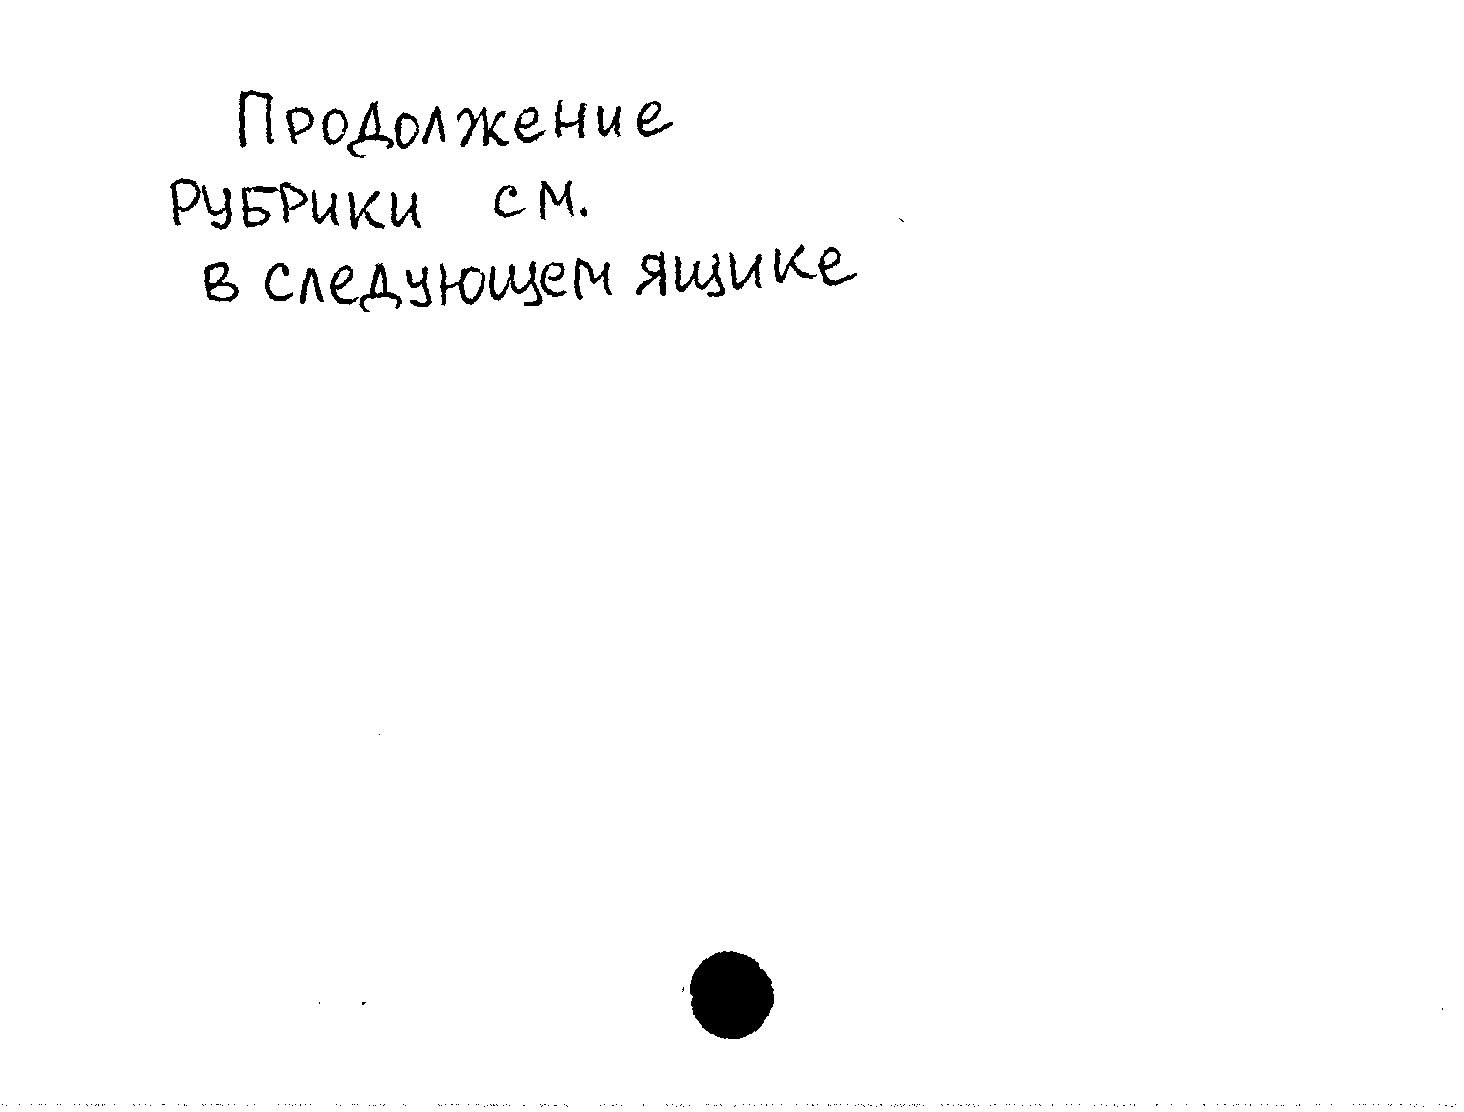 Продолжение
рубрики см.
в следующем ящике